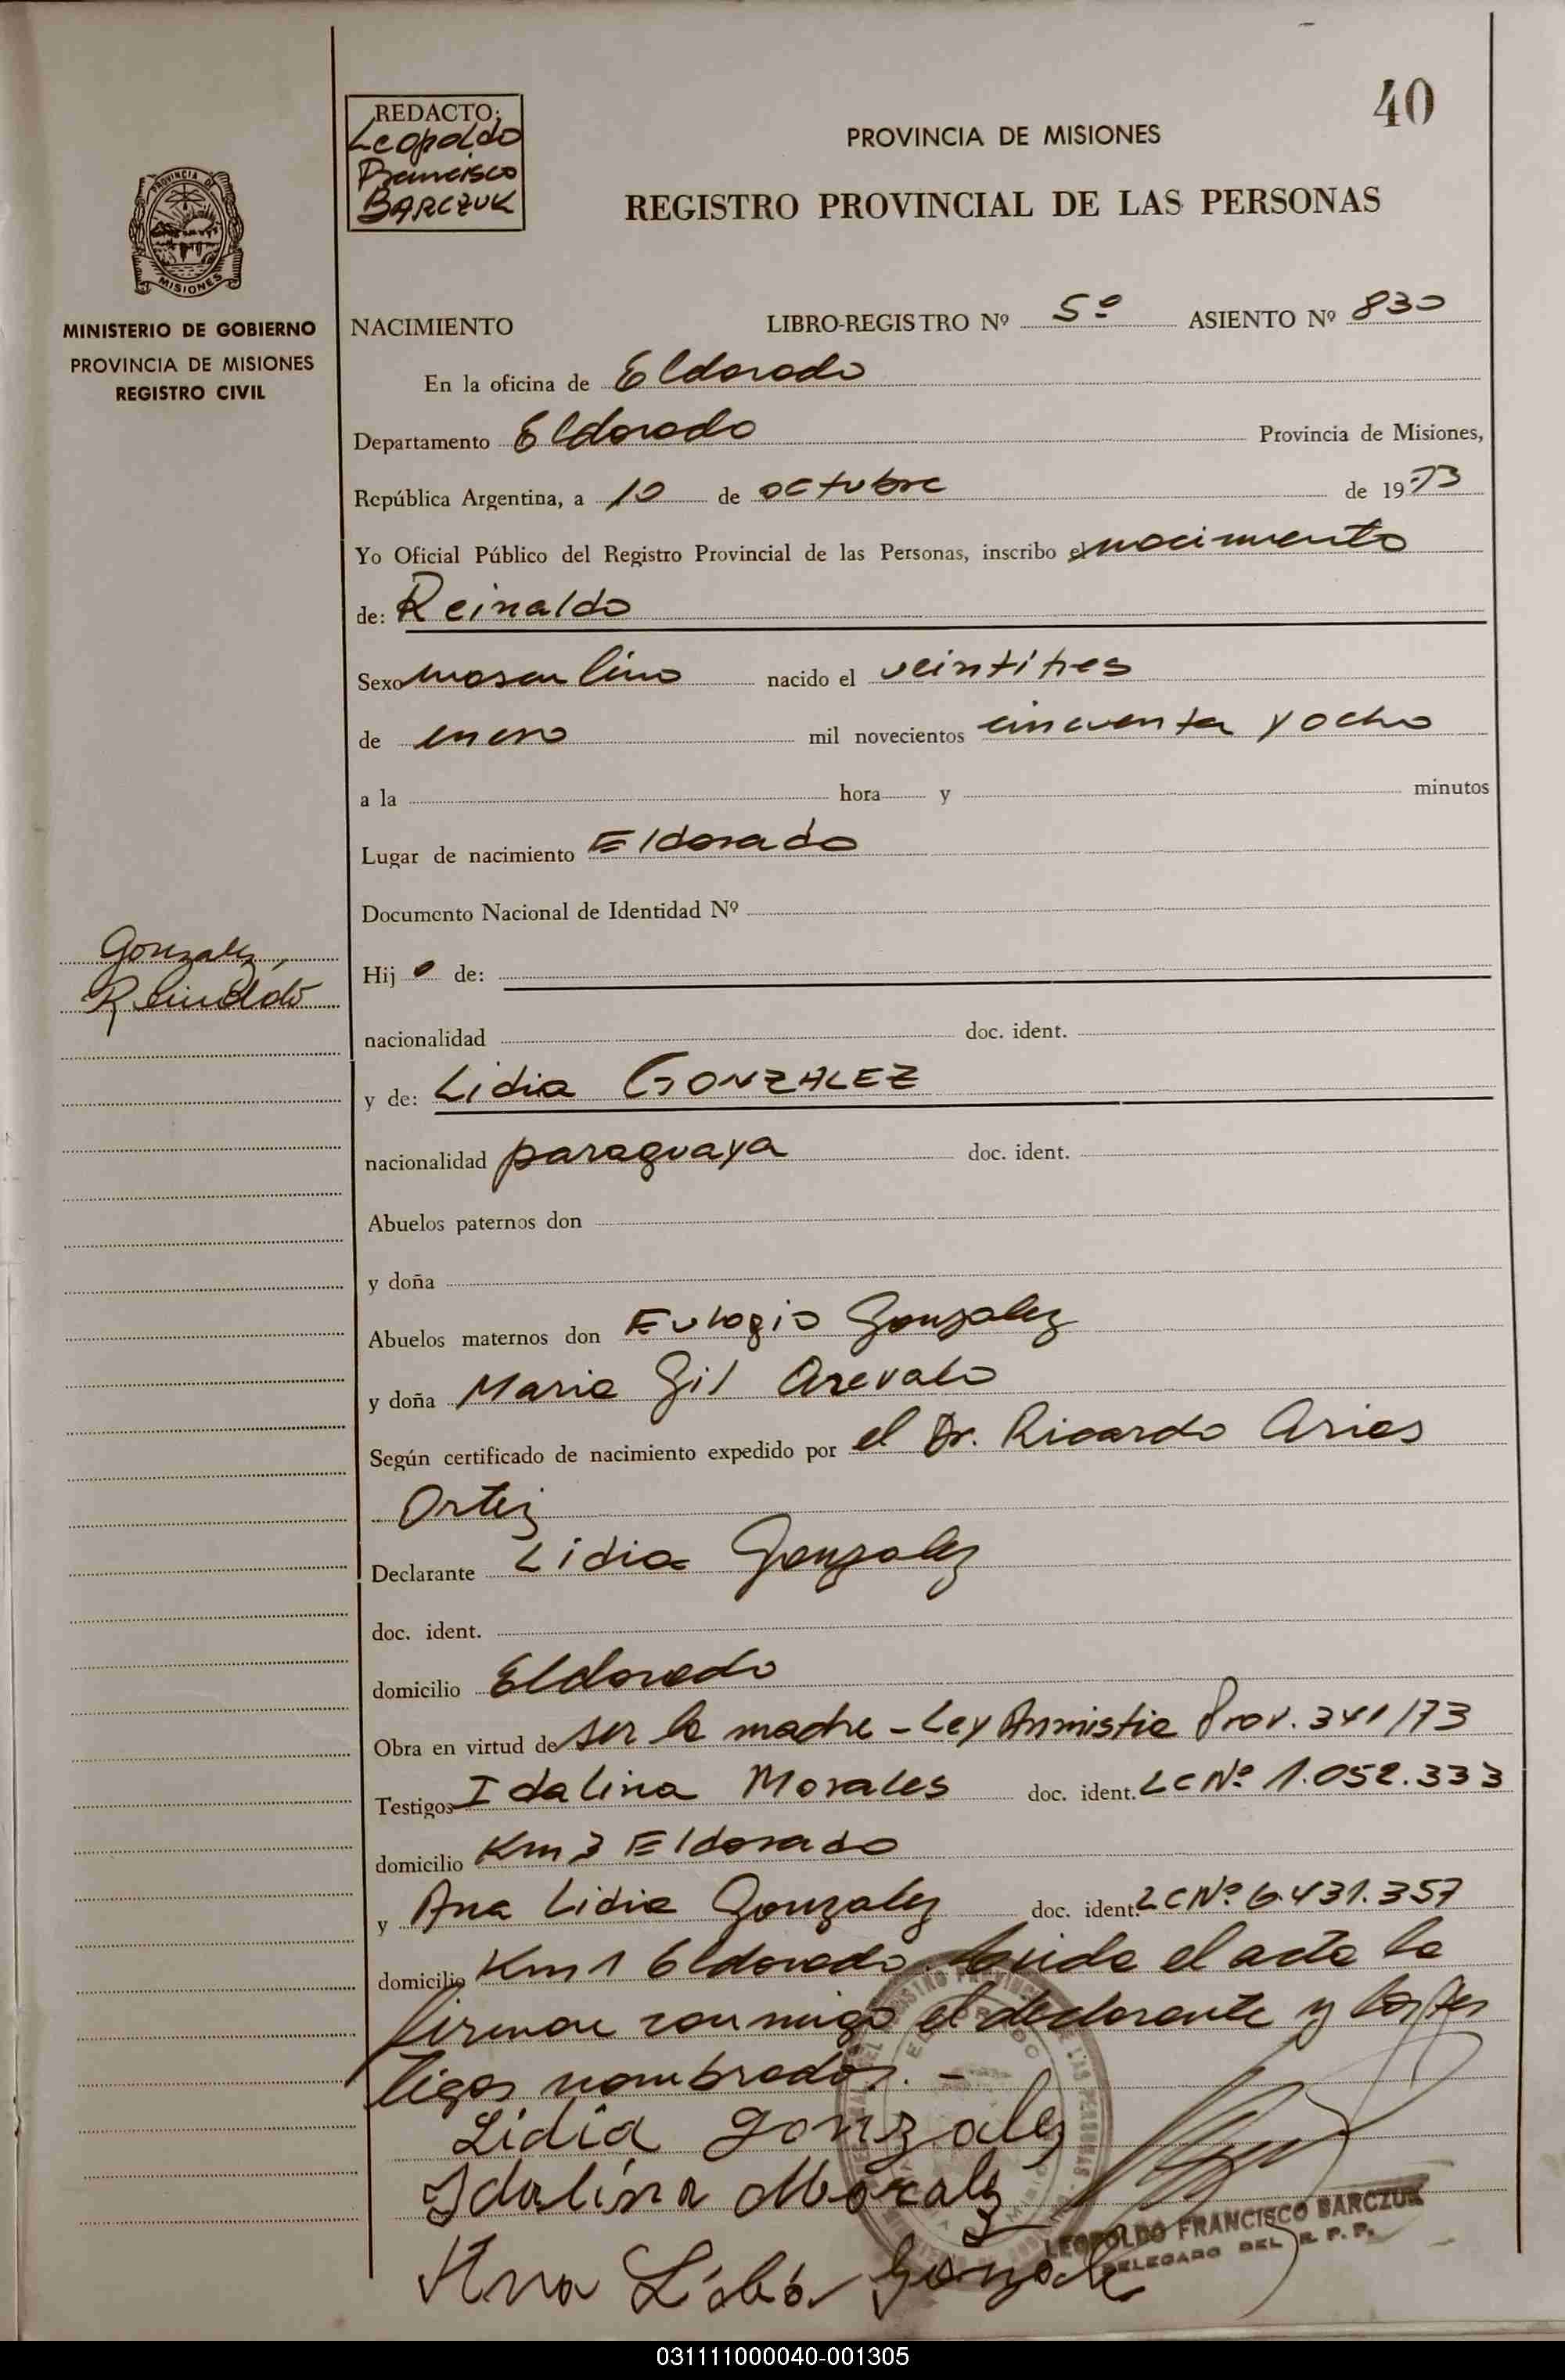 40
REDACTO:
Leopoldo
Francisco
BARCZUK
PROVINCIA DE MISIONES
REGISTRO PROVINCIAL DE LAS PERSONAS
PROVINCIA DE
MISIONES
MINISTERIO DE GOBIERNO
PROVINCIA DE MISIONES
REGISTRO CIVIL
NACIMIENTO LIBRO-REGISTRO Nº 5º ASIENTO Nº 830
En la oficina de Eldorado
Departamento Eldorado Provincia de Misiones,
República Argentina, a 10 de octubre de 1973
Yo Oficial Público del Registro Provincial de las Personas, inscribo el nacimiento
de: Reinaldo
Sexo masculino nacido el veintitres
de enero mil novecientos cincuenta y ocho
a la hora y minutos
Lugar de nacimiento Eldorado
Documento Nacional de Identidad Nº
Gonzalez,
Reinaldo
Hij o de:
nacionalidad doc. ident.
y de: Lidia GONZALEZ
nacionalidad paraguaya doc. ident.
Abuelos paternos don
y doña
Abuelos maternos don Eulogio Gonzalez
y doña Maria Gil Arevalo
Según certificado de nacimiento expedido por el Dr. Ricardo Arias
Ortiz
Declarante Lidia Gonzalez
doc. ident.
domicilio Eldorado
Obra en virtud de ser la madre - Ley Anmistia Prov. 341/73
Testigos Idalina Morales doc. ident. LC Nº 1.052.333
domicilio Km 3 Eldorado
y Ana Lidia Gonzalez doc. ident. LC Nº 6.431.357
domicilio Km 1 Eldorado. Leida el acta la
firman conmigo el declarante y los tes
tigos nombrados. -
Lidia Gonzalez
Idalina Morales
LEOPOLDO FRANCISCO BARCZUK
DELEGADO DEL R. P. P.
Ana Lidia Gonzalez
031111000040-001305